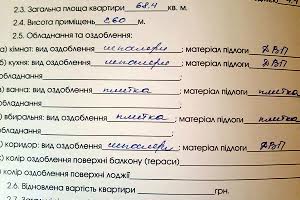 2.3. Загальна площа квартири 68.4 кв. м.
2.4. Висота приміщень 2.60 м.
2.5. Обладнання та оздоблення:
а) кімнат: вид оздоблення шпалери; матеріал підлоги ДВП
б) кухня: вид оздоблення шпалери; матеріал підлоги ДВП
обладнання
в) ванна: вид оздоблення плитка; матеріал підлоги плитка
обладнання ;
г) вбиральня: вид оздоблення плитка; матеріал підлоги плитка
обладнання ;
д) коридор: вид оздоблення шпалери; матеріал підлоги ДВП
колір оздоблення поверхні балкону (тераси)
колір оздоблення поверхні лоджії
2.6. Відновлена вартість квартири грн.